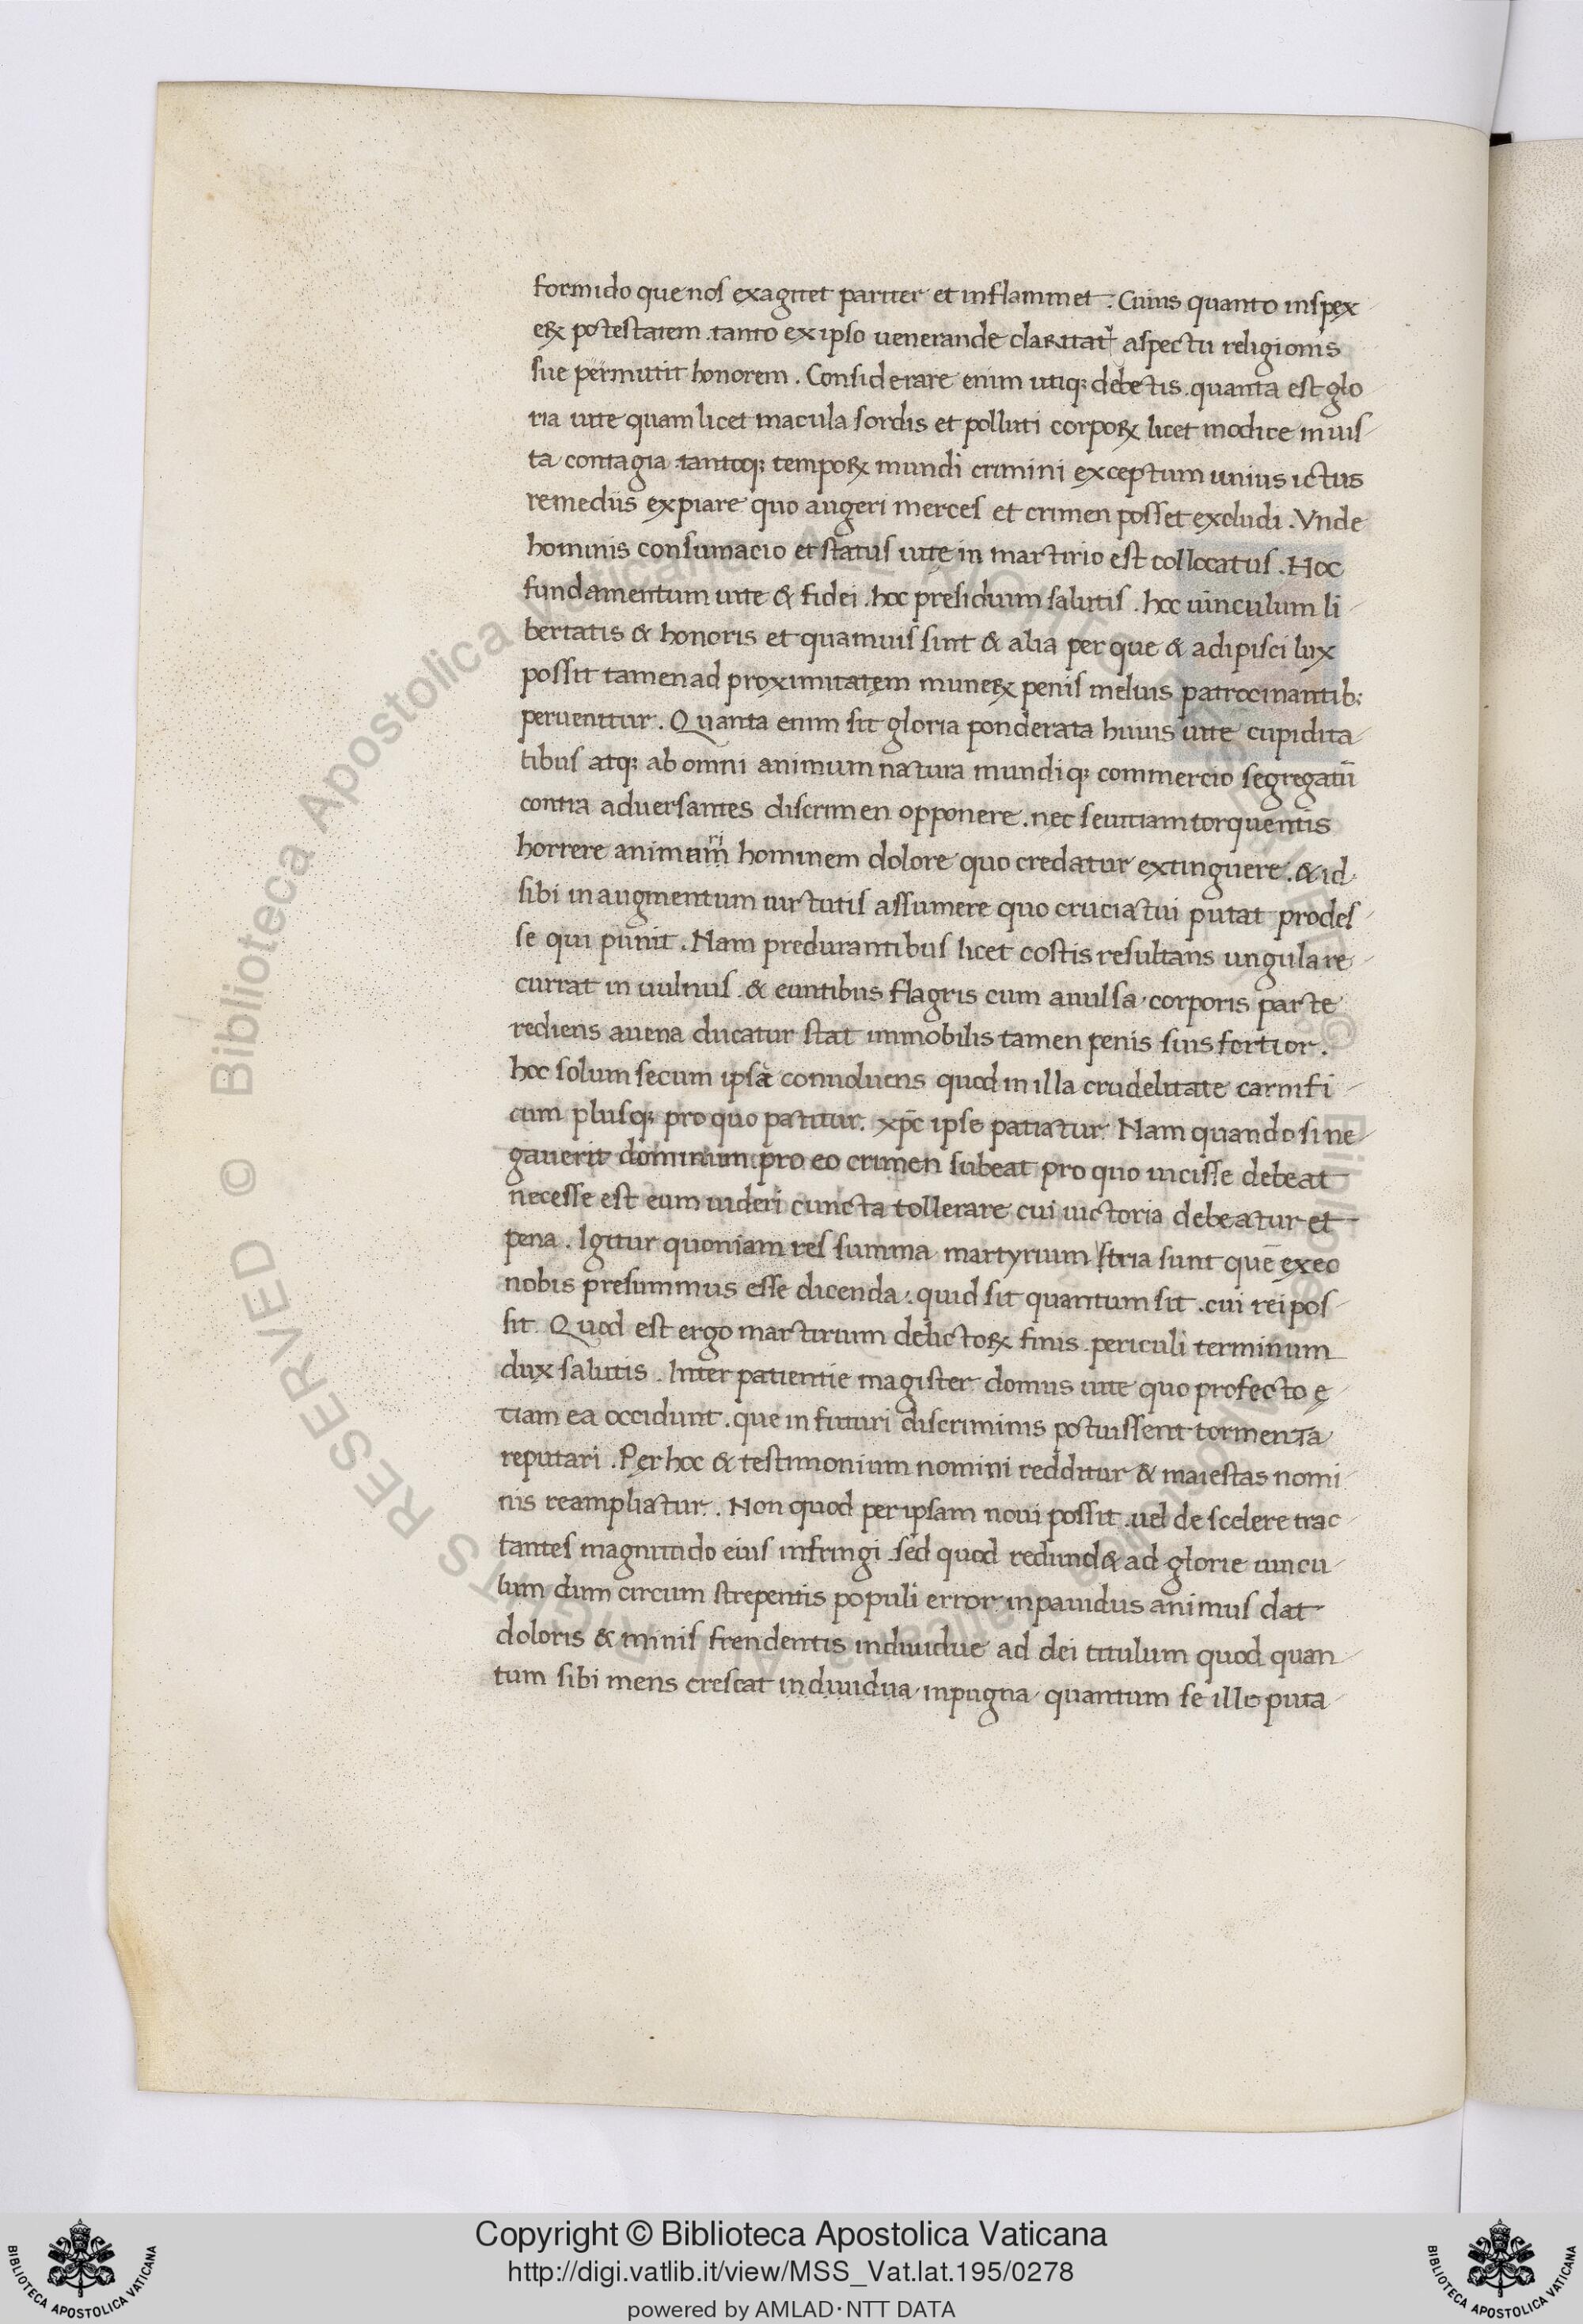 formido que nos exagitet pariter et inflammet. Cuius quanto inspex
erꝝ potestatem. tanto ex ipso uenerande claritat aspectu religionis
sue permutit honorem. Considerare enim utiq; debetis. quanta est glo
ria uite quam licet macula sordis et polluti corporꝝ licet modice inuis
ta contagia. tantoq; temporꝝ mundi crimini exceptum unius ictus
remediis expiare quo augeri merces et crimen posset excludi. Vnde
hominis consumacio et status uite in martirio est collocatus. Hoc
fundamentum uite & fidei. hoc presidium salutis. hoc uinculum li
bertatis & honoris et quamuis sint & alia per que & adipisci lux
possit tamen ad proximitatem munerꝝ penis melius patrocinantib;
peruenitur. Quanta enim sit gloria ponderata huius uite cupidita
tibus atq; ab omni animum natura mundiq; commercio segregatū
contra aduersantes discrimen opponere. nec seuitiam torquentis
horrere hominem dolore quo credatur extinguere. & id
sibi in augmentum uirtutis assumere quo cruciatui putat prodes
se qui punit. Nam predurantibus licet costis resultans ungula re
currat in uulnus. & euntibus flagris cum auulsa corporis parte
rediens auena ducatur stat immobilis tamen penis suis fortior.
hoc solum secum ipse conuoluens quod in illa crudelitate carnifi
cum plusq; pro quo patitur. xp̄c ipse patiatur. Nam quando si ne
gauerit dominum pro eo crimen subeat pro quo uicisse debeat
necesse est eum uideri cuncta tollerare cui uictoria debeatur et
pena. Igitur quoniam res summa martyrium stria sunt quē ex eo
nobis presummus esse dicenda. quid sit quantum sit. cui rei pos
sit. Quod est ergo martirium delictorꝝ finis. periculi terminum
dux salutis. Inter patientie magister domus uite quo profecto ę
tiam ea occidunt. que in futuri discriminis potuissent tormenta
reputari. Per hoc & testimonium nomini redditur & maiestas nomi
nis reampliatur. Non quod per ipsam noui possit. uel de scelere trac
tantes magnitudo eius infringi. sed quod redund& ad glorie uincu
lum dum circum strepentis populi error inpauidus animus dat
doloris & minis frendentis indiuidue ad dei titulum quod quan
tum sibi mens crescat indiuidua inpugna quantum se ille puta
© Biblioteca Apostolica Vaticana
ALL RIGHTS RESERVED
Copyright © Biblioteca Apostolica Vaticana
http://digi.vatlib.it/view/MSS_Vat.lat.195/0278
powered by AMLAD·NTT DATA
BIBLIOTECA APOSTOLICA VATICANA
BIBLIOTECA APOSTOLICA VATICANA